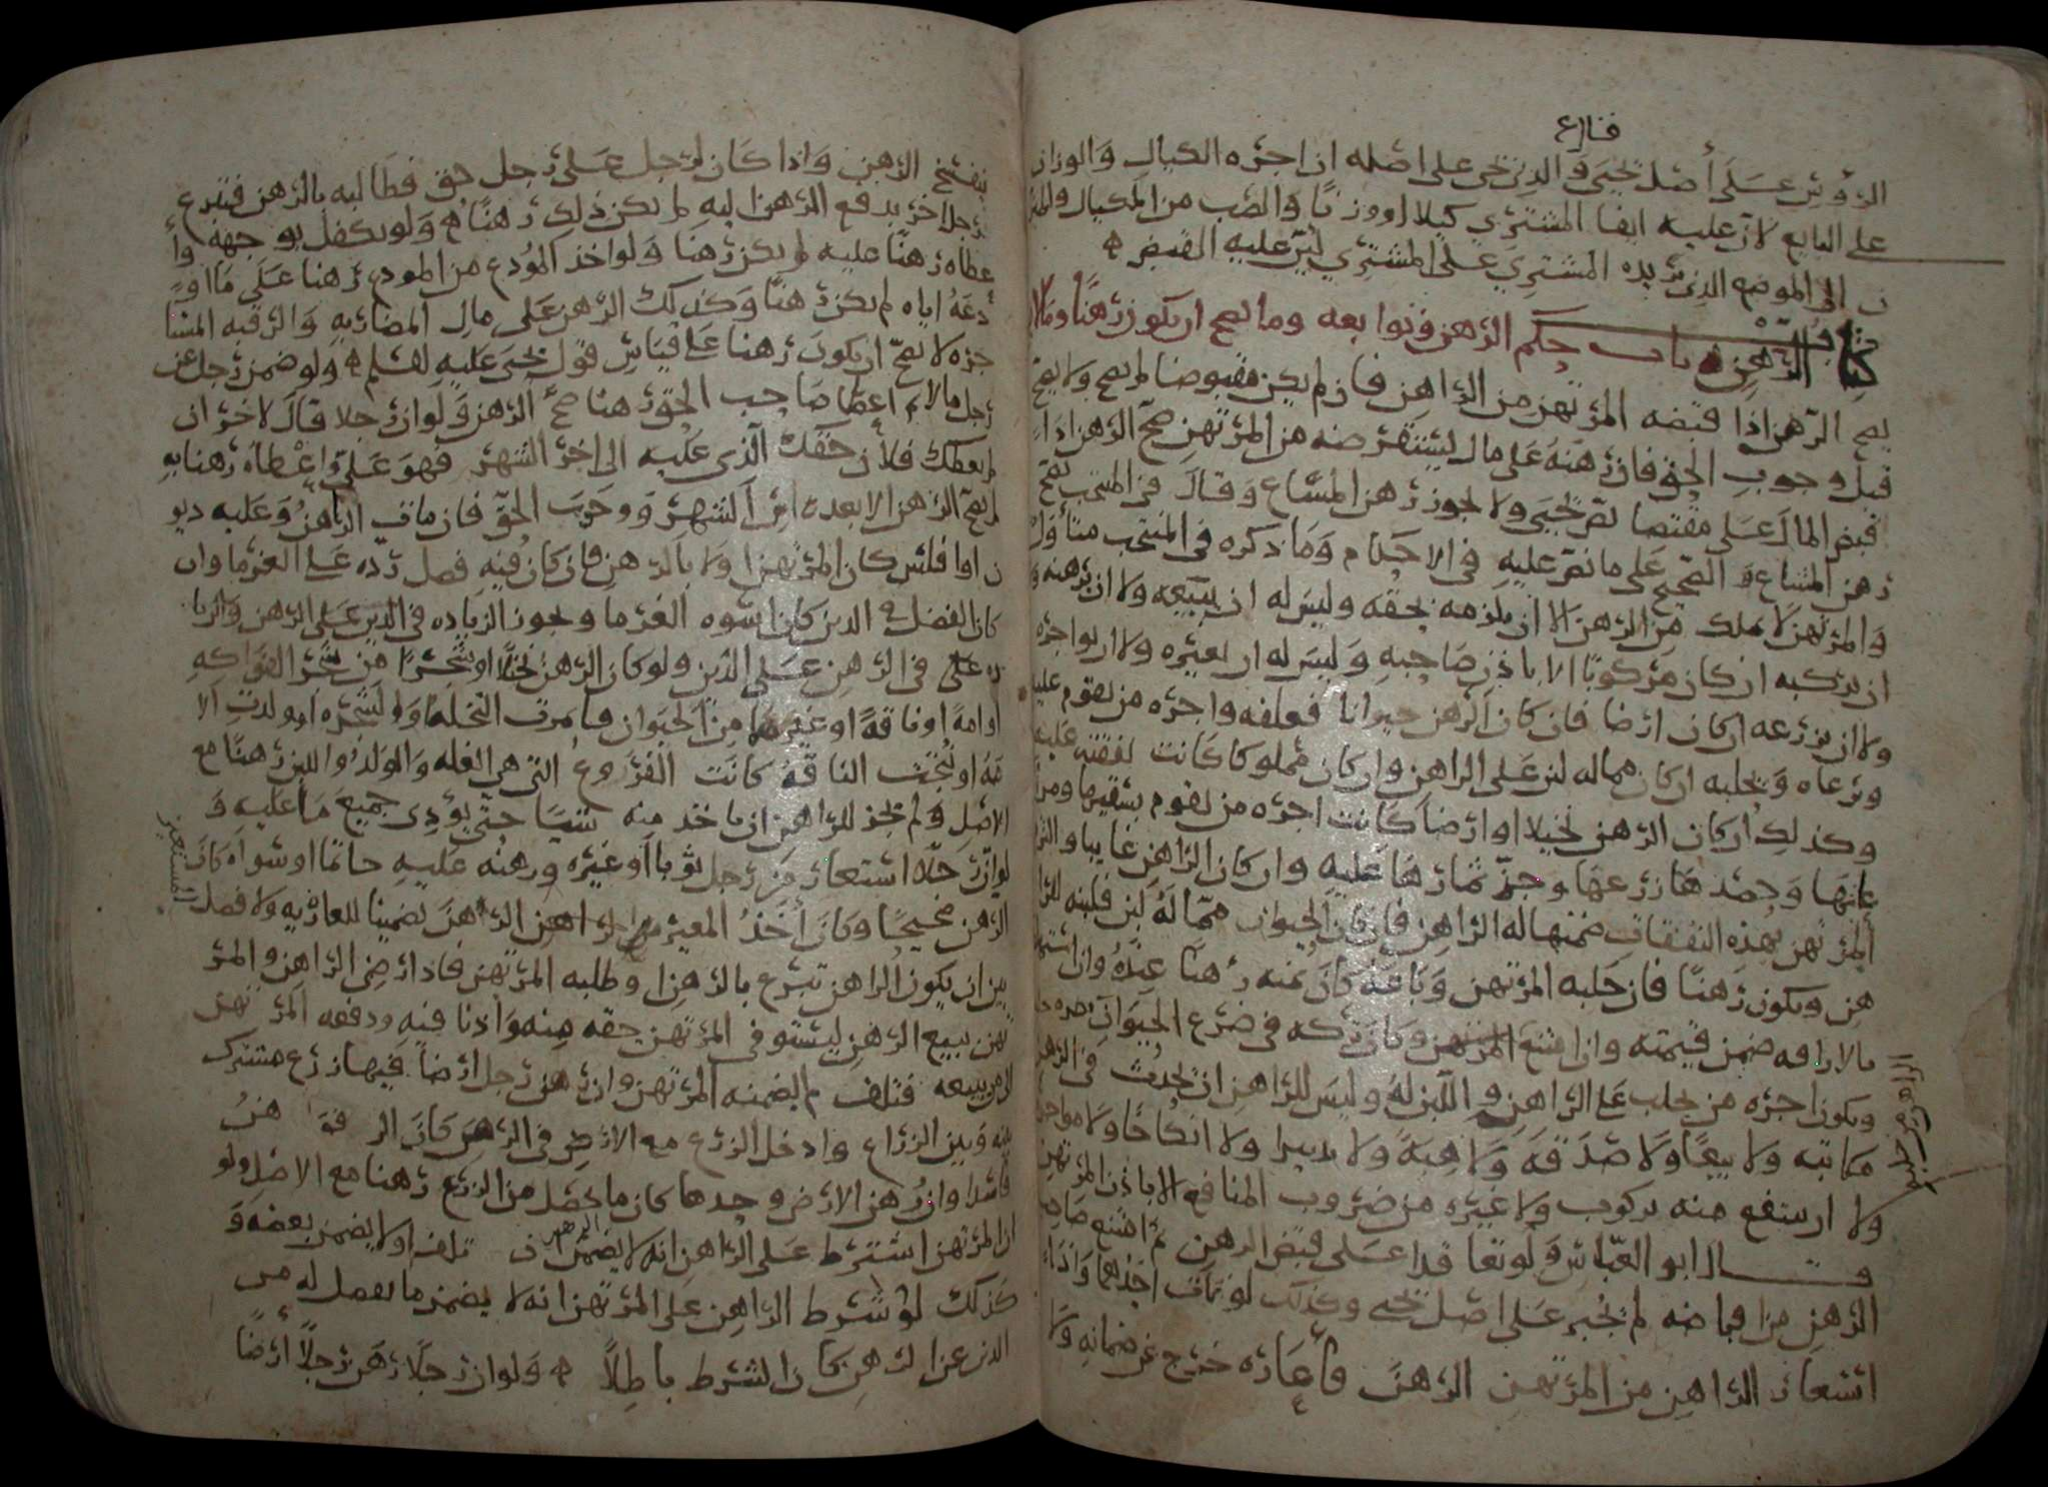 الرؤوس على أصل يحيى والذي يجي على اصله ان اجره الكيال والوزان
على البايع لان عليه ايفا المشتري كيلا او وزنا والصب من المكيال والميز
ن الى الموضع الذي يريده المشتري على المشتري لان عليه القبض
كتاب الرهن باب حكم الرهن وتوابعه وما يصح ان يكون رهنا وما لا
يصح الرهن اذا قبضه المرتهن من الراهن فان لم يكن مقبوضا لم يصح ولا يصح
قبل وجوب الحق فان رهنه على مال يستقرضه من المرتهن صح الرهن اذا
قبض المال على مقتضا نص يحيى ولا يجوز رهن المشاع وقال في المنتخب يصح
رهن المشاع والصحيح على ما نص عليه في الاحكام وما ذكره في المنتخب متأول
والمرتهن لا يملك من الرهن الا ان يلزمه بحقه وليس له ان يبيعه ولا ان يرهنه و
ان يركبه ان كان مركوبا الا باذن صاحبه وليس له ان يعيره ولا ان يواجره
ولا ان يزرعه ان كان ارضا فان كان الرهن حيوانا فعلفه واجره من يقوم عليه
ويرعاه ويحلبه ان كان مما له لبن على الراهن وان كان مملوكا كانت نفقته عليه
وكذلك ان كان الرهن نخيلا او ارضا كانت اجره من يقوم بسقيها
وحصدها زرعها وجز ثمارها عليه وان كان الراهن غايبا
المرتهن بهذه النفقات ضمنها له الراهن فان كان الحيوان مما له لبن فلبنه للرا
هن ويكون رهنا فان حلبه المرتهن وباعه كان ثمنه رهنا عنده وان استه
بالاراقه ضمن قيمته وان امتنع المرتهن وكان تركه في ضرع الحيوان
ويكون اجره من يحلب على الراهن واللبن له وليس للراهن ان يحدث في الرهن
مكاتبه ولا بيعا ولا صدقه ولا هبه ولا تدبيرا ولا انكاحا ولا
ولا ان ينتفع منه بركوب ولا غيره من ضروب المنافع الا باذن المرتهن
وقال ابو العباس ولو تعاقدا على قبض الرهن ثم امتنع صاحب
الرهن من اقباضه لم يجبر على اصل يحيى وكذلك لو مات احدهما واذا
استعار الراهن من المرتهن الرهن فأعاره خرج عن ضمانه ولا
ينفسخ الرهن واذا كان لرجل على رجل حق فطالبه بالرهن فتبرع
رجلا اخر بدفع الرهن اليه لم يكن ذلك رهنا ولو تكفل بوجهه وأ
عطاه رهنا عليه لم يكن رهنا ولو اخذ المودع من المودع رهنا على ما او
دعه اياه لم يكن رهنا وكذلك الرهن على مال المضاربه والرقبه المستا
جره لا يصح ان يكون رهنا على قياس قول يحيى عليه السلم ولو ضمن رجل عن
رجل مالا ثم اعطا صاحب الحق رهنا صح الرهن ولو ان رجلا قال لاخر ان
لم يعطك فلان حقك الذي عليه الى اخر الشهر فهو علي واعطاه رهنا به
لم يصح الرهن الا بعد راس الشهر ووجب الحق فان مات الراهن وعليه ديو
ن او افلس كان المرتهن اولا بالرهن فان كان فيه فضل رده على الغرما وان
كان الفضل في الدين كان اسوه الغرما ويجوز الزياده في الدين على الرهن والزيا
ده في الرهن على الدين ولو كان الرهن نخلا او شجرا من شجر الفواكه
او امة او ناقة او غيرهما من الحيوان فاثمرت النخله والشجره او ولدت الا
مة او نتجت الناقة كانت الفروع التي هي الغله والولد واللبن رهنا مع
الاصل ولم يجز للراهن ان ياخذ منه شيا حتى يؤدي جميع ما عليه و
لو ان رجلا استعار من رجل ثوبا او غيره ورهنه عليه خاتما او سواه كان
الرهن صحيحا وكان أخذ المعير من الراهن الرهن تضمينا للعاريه ولا فصل
بين ان يكون الراهن تبرع بالرهن او طلبه المرتهن فاذا رضي الراهن والمر
تهن ببيع الرهن ليستوفي المرتهن حقه منه واذنا فيه ودفعه المرتهن
الى من يبيعه فتلف لم يضمنه المرتهن وان رهن رجل ارضا فيها زرع مشترك
بينه وبين الزراع وادخل الزرع مع الارض في الرهن كان الرهن
فاسدا وان رهن الارض وحدها كان ما يحصل من الزرع رهنا مع الاصل ولو
ان المرتهن اشترط على الراهن انه لا يضمن الرهن ان تلف اولا يضمن بعضه و
كذلك لو شرط الراهن على المرتهن انه لا يضمن ما يفضل له من
الدين عن الرهن كان الشرط باطلا ولو ان رجلا رهن رجلا أرضا